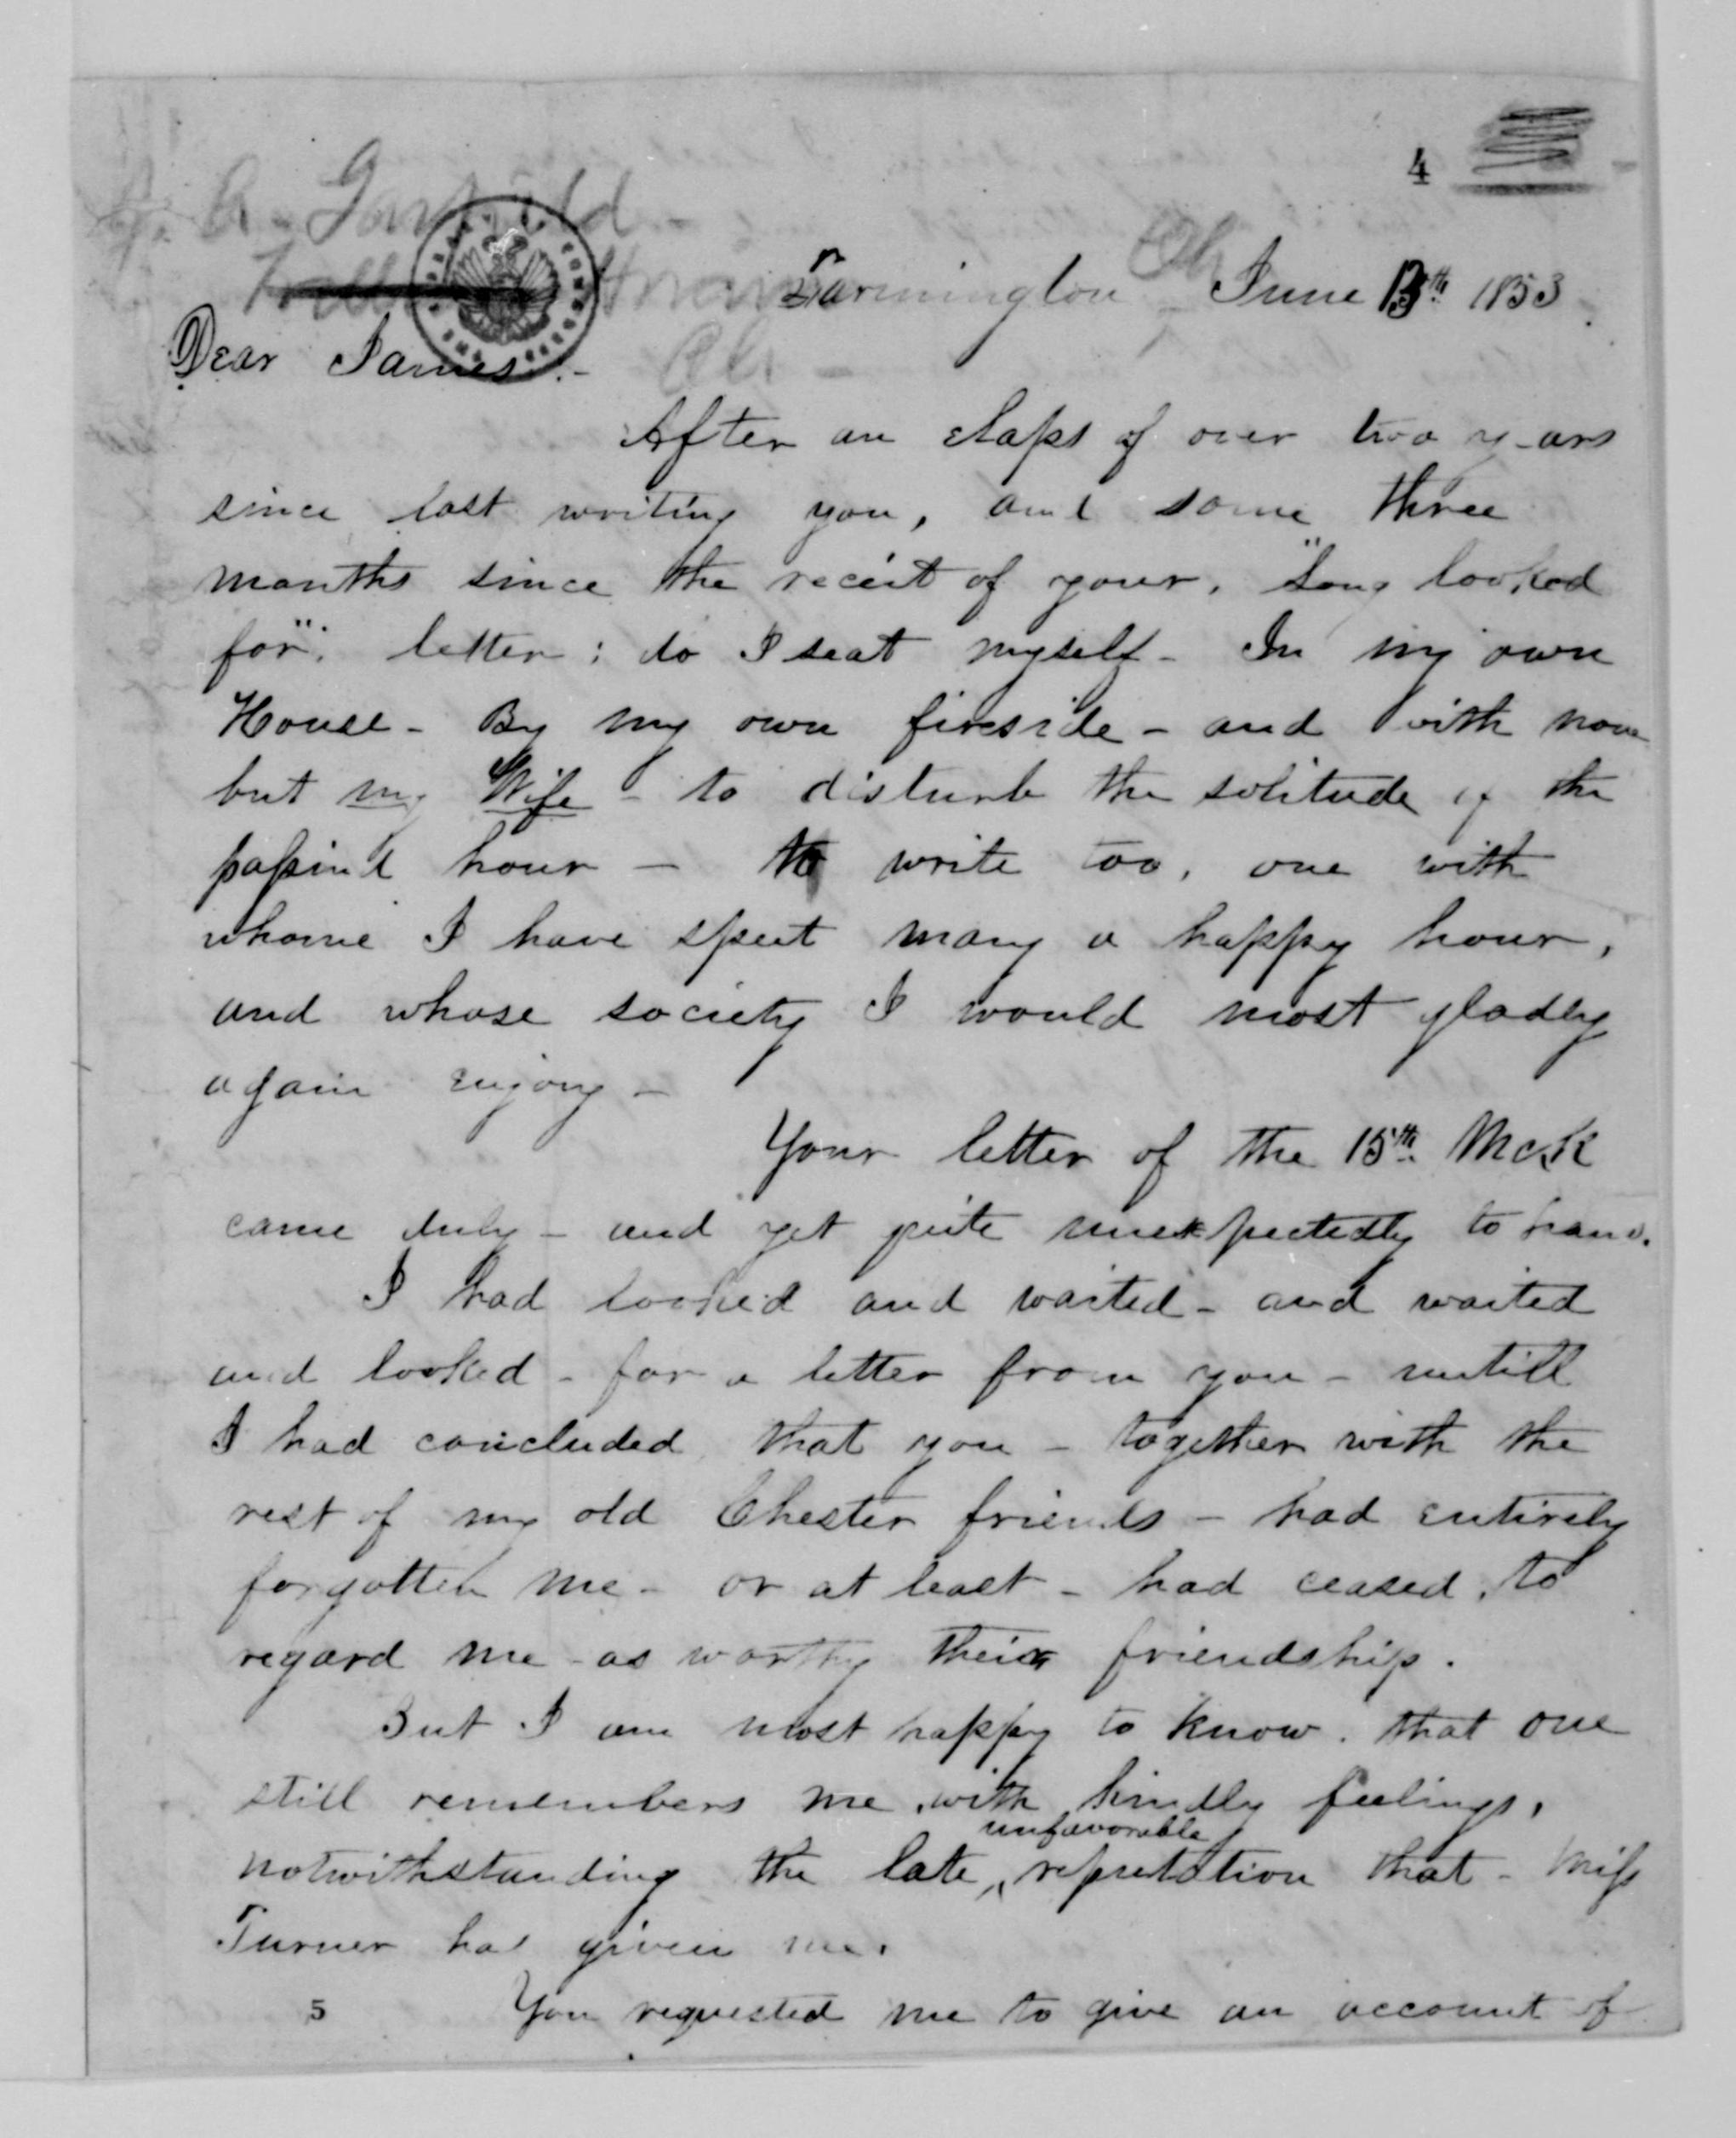 4
J. A. Garfield -
Hiram
Farmington Oh June 13th 1853.
Oh -
Dear James.-
After an elapse of over two years
since last writing you, and some three
months since the receit of your, "long looked
for": letter; do I seat myself - In my own
House - By my own fireside - and with none
but my Wife - to disturb the solitude of the
passind hour - to write too, one with
whome I have spent many a happy hour,
and whose society I would most gladly
again enjoy -
Your letter of the 15th Mck
came duly - and yet quite unexpectedly to hand.
I had looked and waited - and waited
and looked - for a letter from you - untill
I had concluded that you - together with the
rest of my old Chester friends - had entirely
forgotten me - or at least - had ceased to
regard me - as worthy their friendship.
But I am most happy to know. that one
still remembers me, with kindly feelings,
unfavorable
notwithstanding the late, ^ reputation that - Miss
Turner has given me.
5 You requested me to give an account of